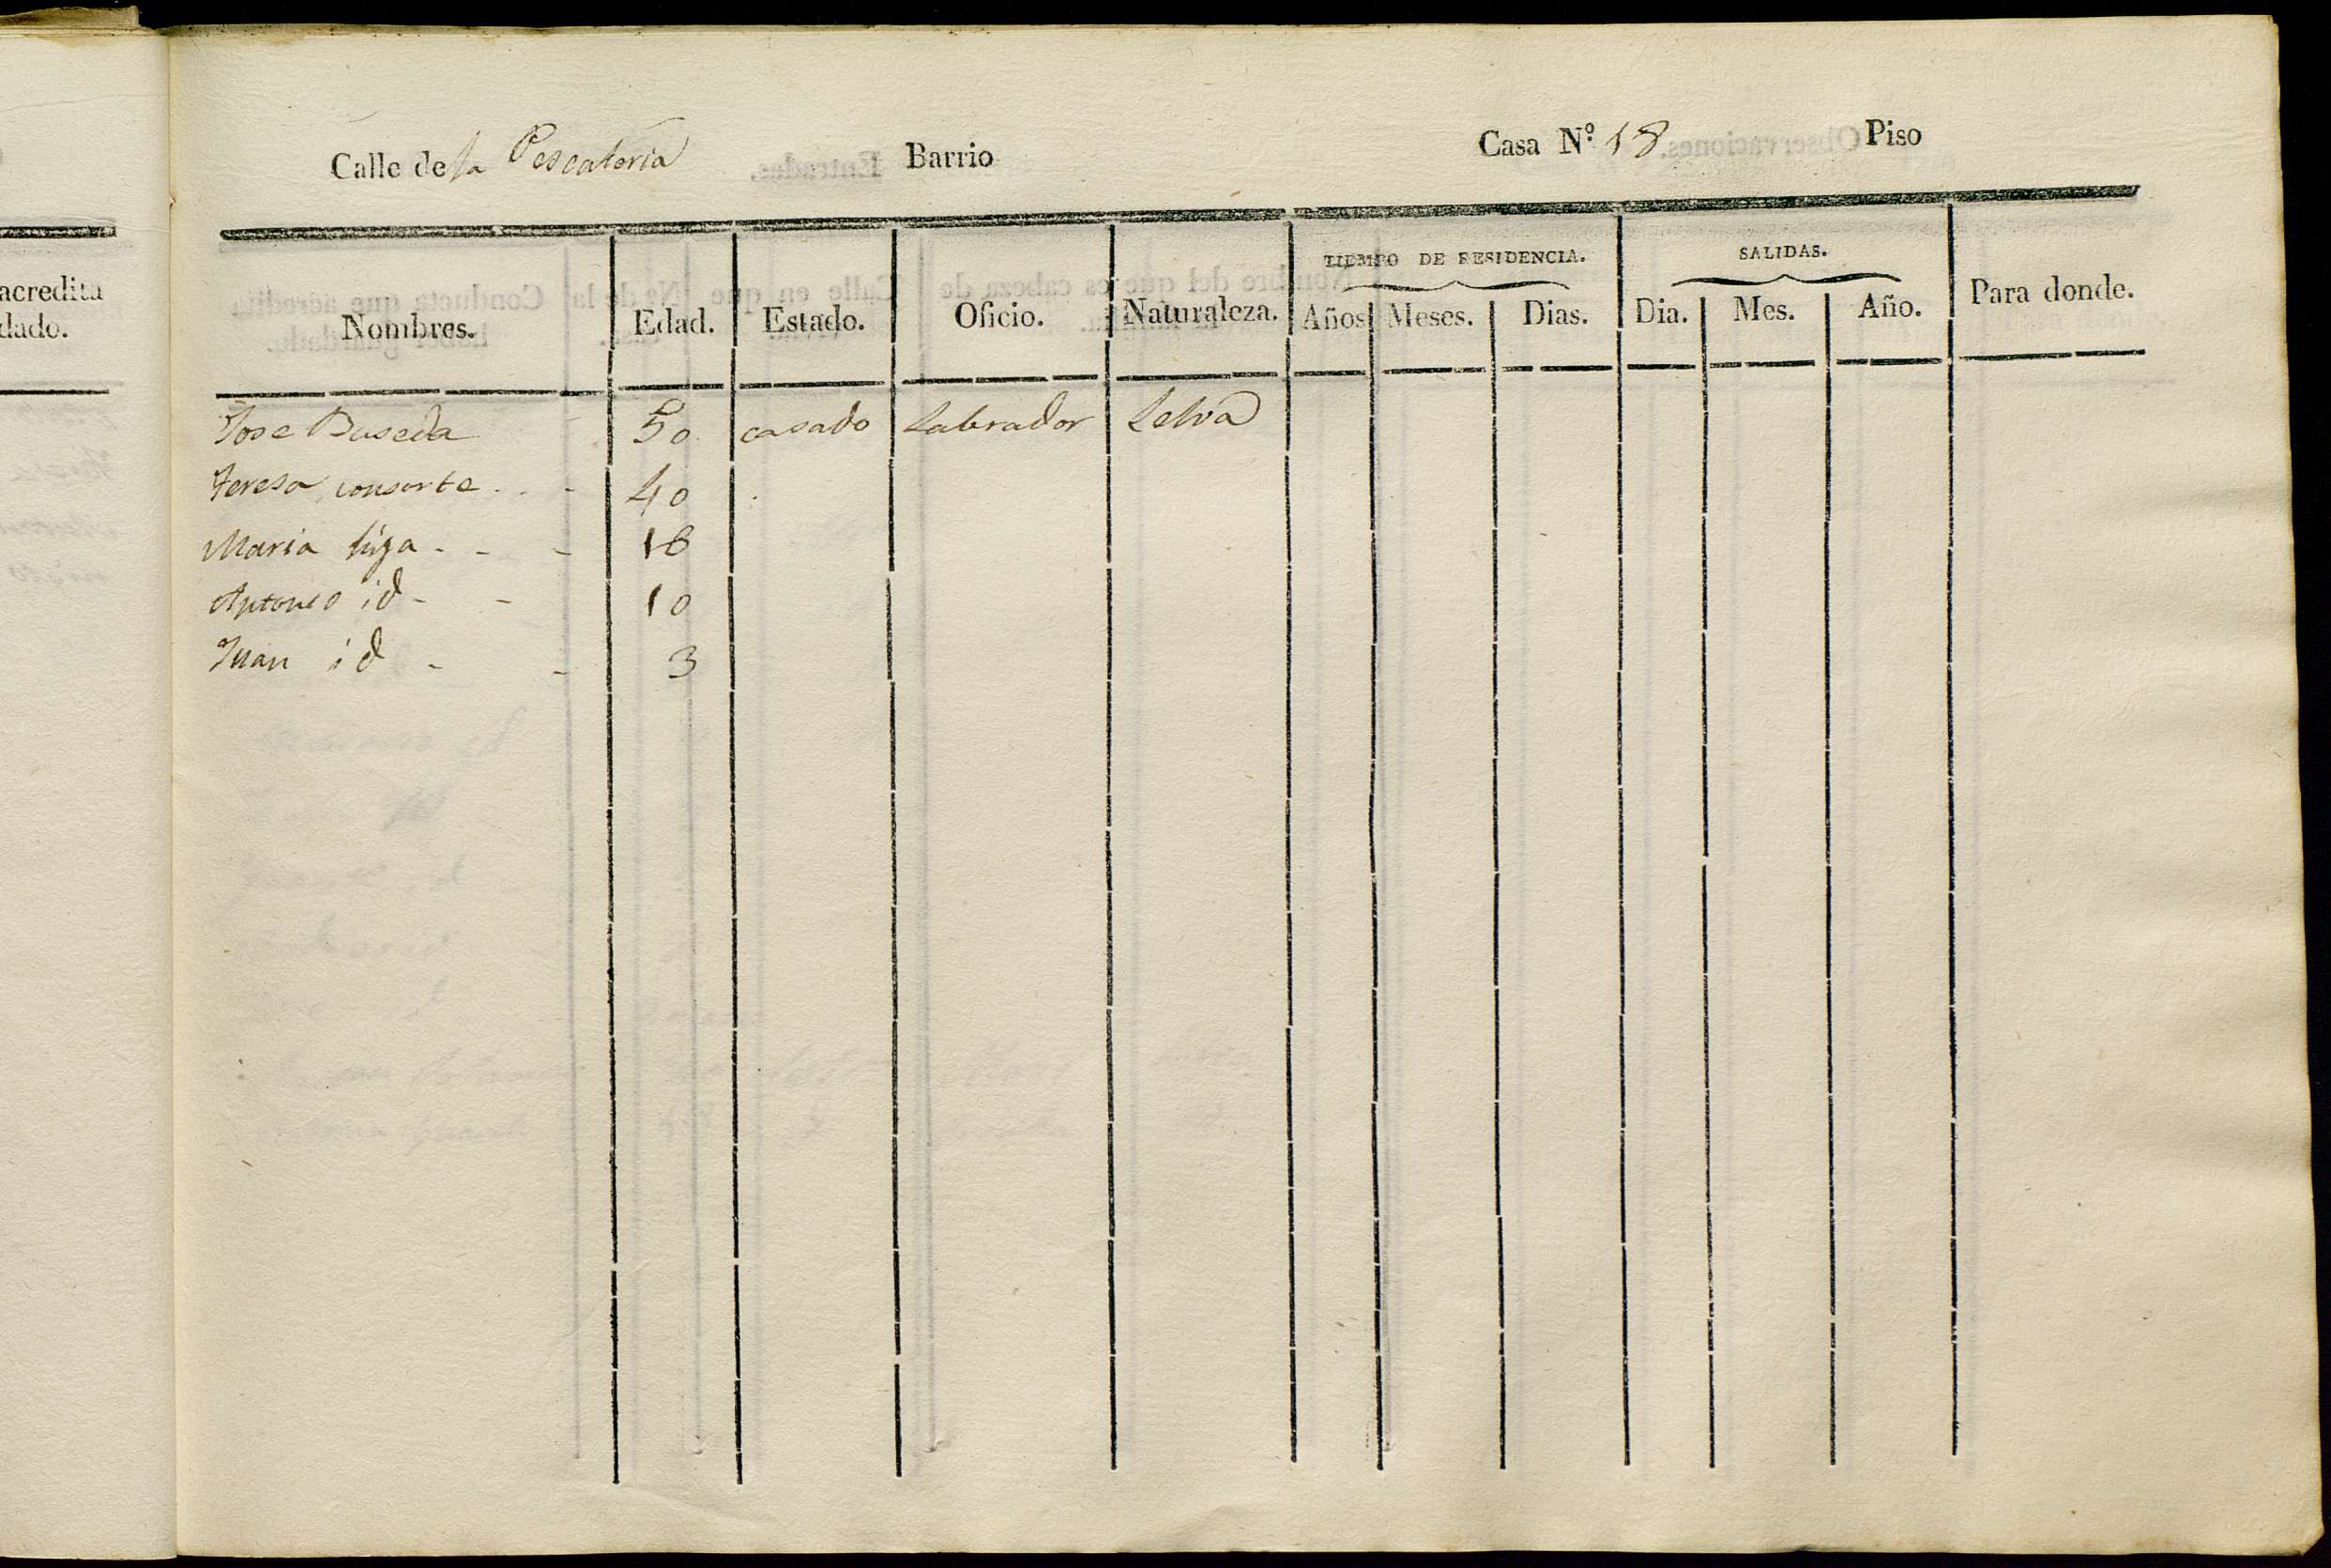 acredita
dado.
Calle de la Pescateria Barrio Casa N.º 18 Piso
TIEMPO DE RESIDENCIA. SALIDAS.
Nombres. Edad. Estado. Oficio. Naturaleza. Años Meses. Dias. Dia. Mes. Año. Para donde.
Jose Buseda 50 casado Labrador Selva
Teresa consorte 40
Maria hija 16
Antonio id 10
Juan id 3